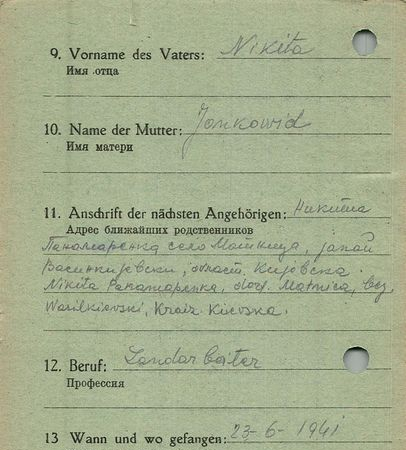 9. Vorname des Vaters: Nikita
Имя отца
10. Name der Mutter: Jonkowid
Имя матери
11. Anschrift der nächsten Angehörigen: Никита
Адрес ближайших родственников
Панамаренка село Матница,
Василкијевски, Кијовска.
Nikita Panamarenka, dorf. Matnica, bez.
Wasilkievski, Kreiz Kievska.
12. Beruf: Landarbeiter
Профессия
13 Wann und wo gefangen: 23-6-1941